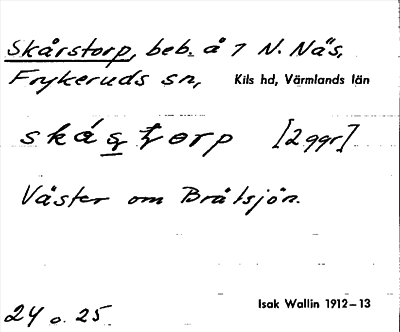 Skårstorp, beb. å 7 N. Näs,
Frykeruds sn, Kils hd, Värmlands län
skás̱torp [2 ggr]
Väster om Bråtsjön.
24 o. 25. Isak Wallin 1912–13